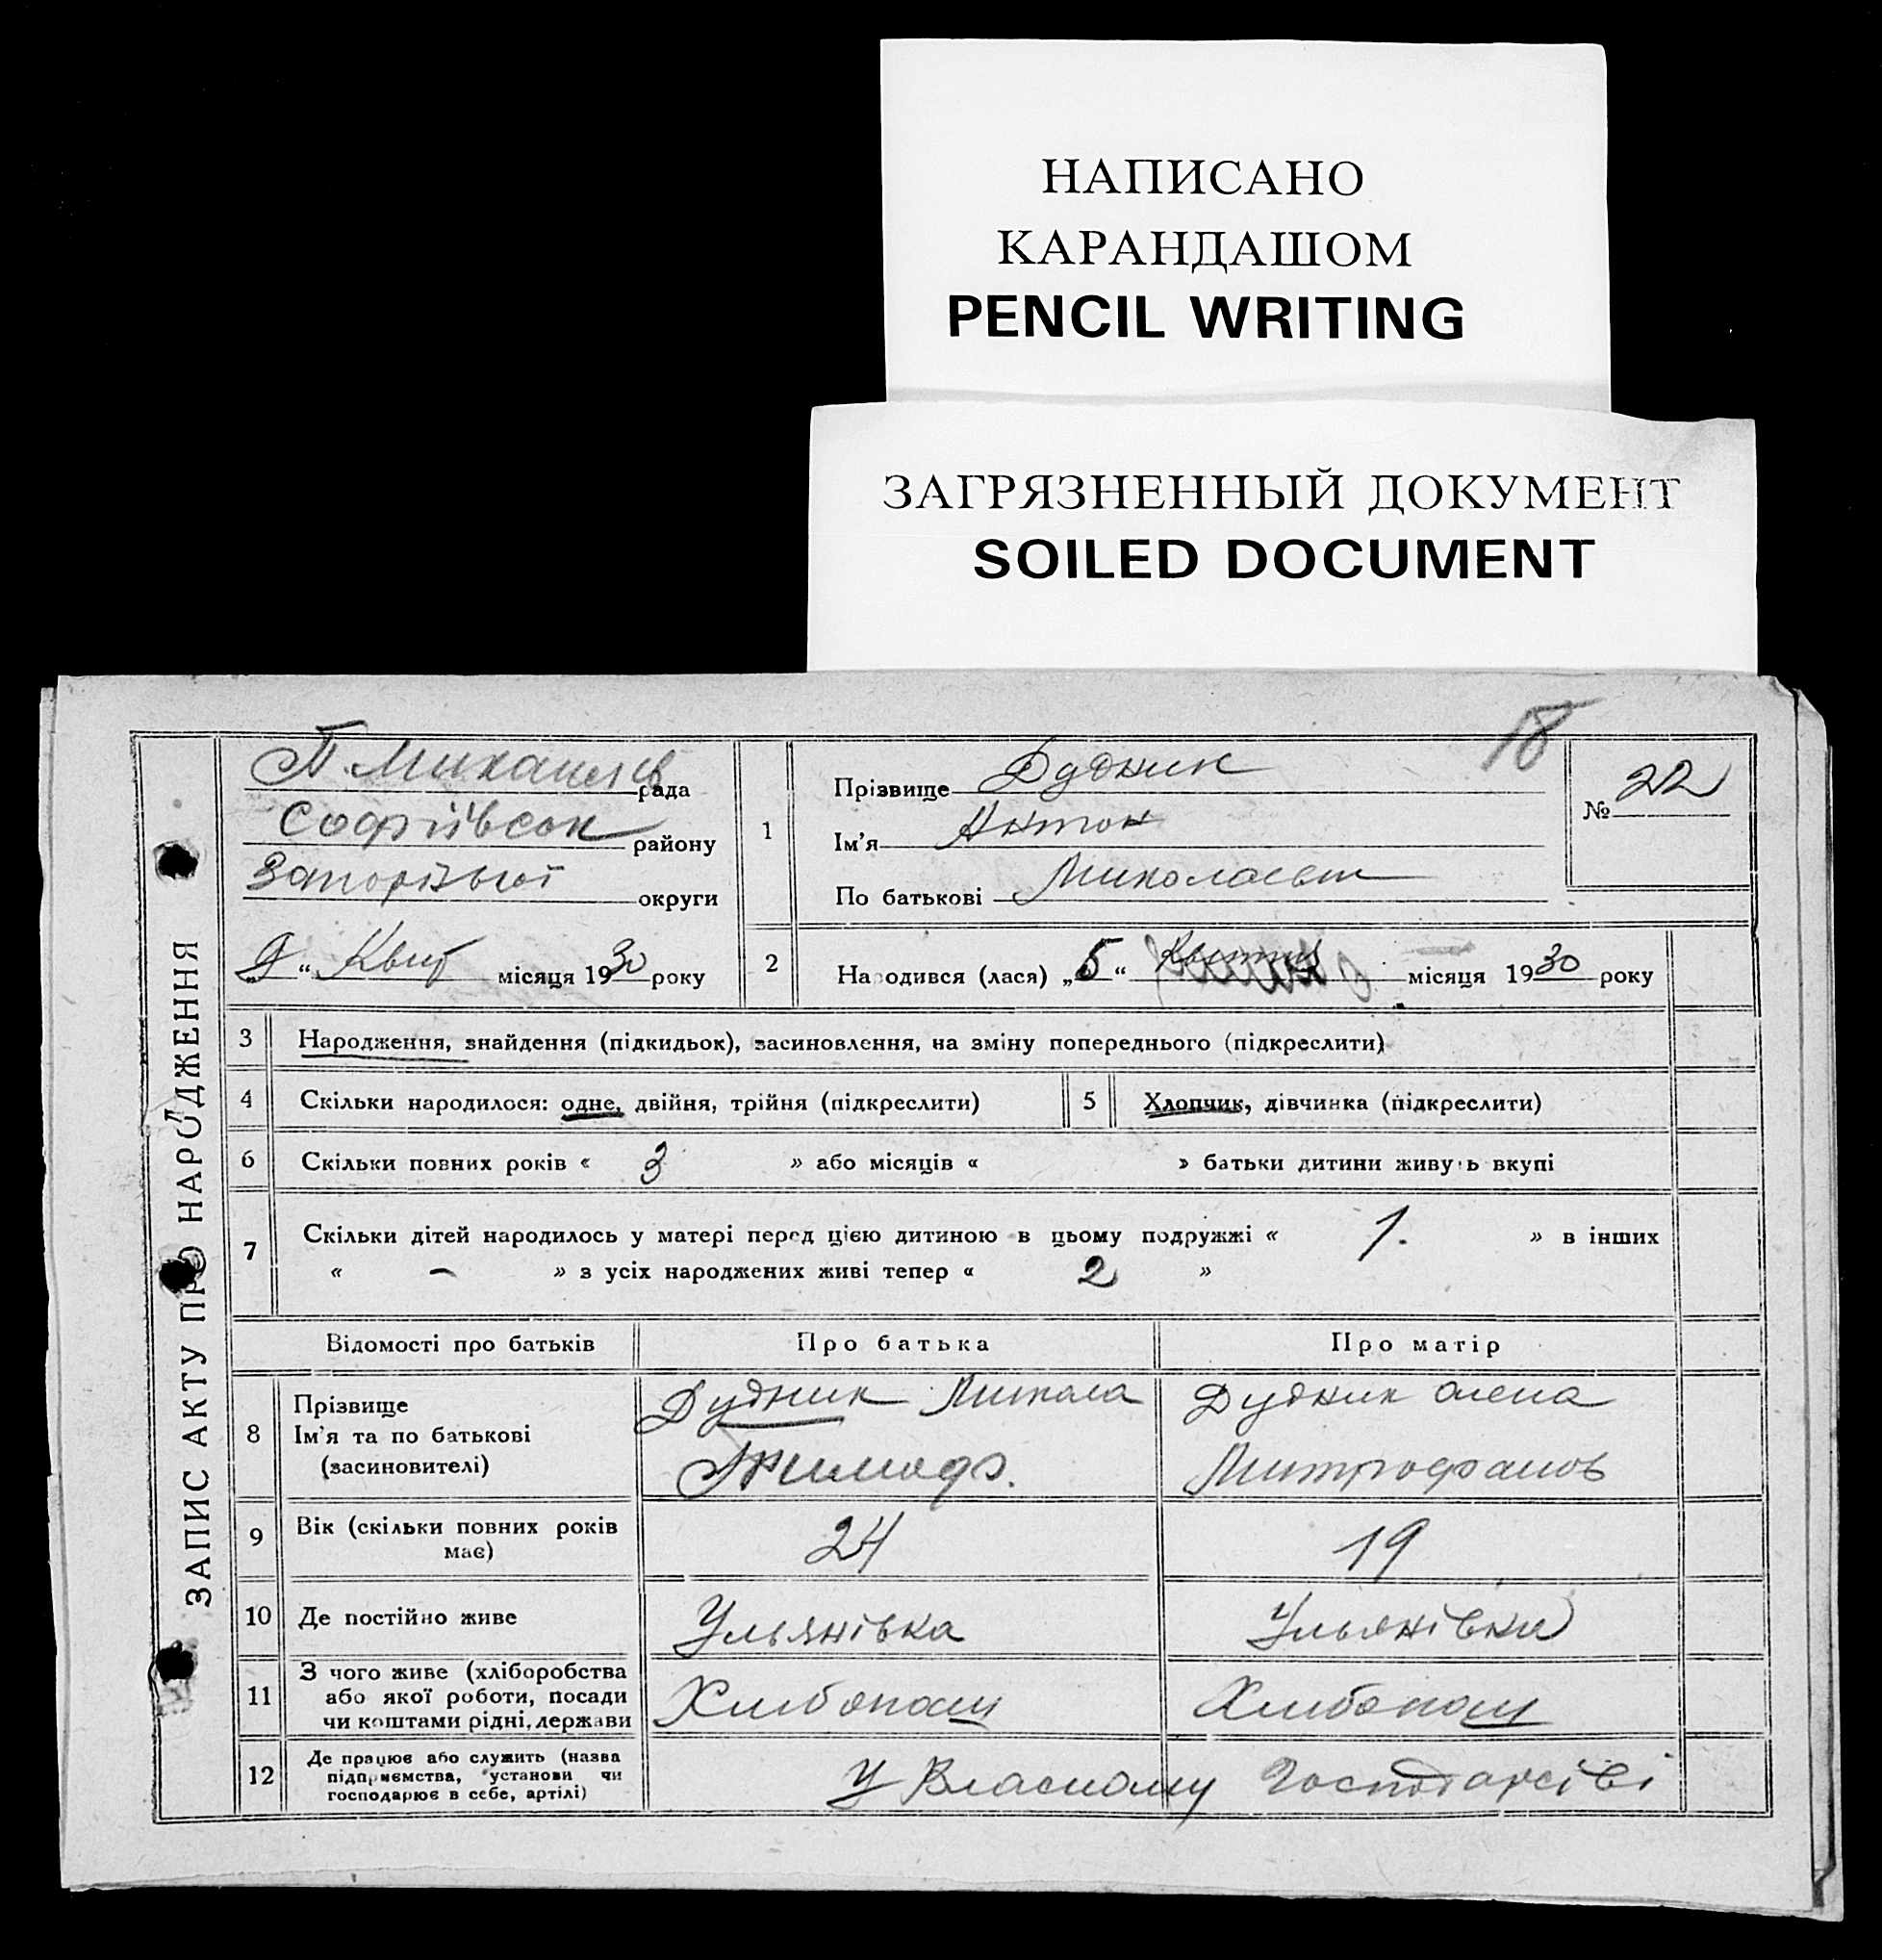 НАПИСАНО
КАРАНДАШОМ
PENCIL WRITING
ЗАГРЯЗНЕННЫЙ ДОКУМЕНТ
SOILED DOCUMENT
18
ЗАПИС АКТУ ПРО НАРОДЖЕННЯ
П. Михайлів рада
Софіївськ району
Запорізької округи
„9“ Квіт місяця 1930 року
1
Прізвище Дудник
Ім'я Антон
По батькові Миколаєвич
№ 22
2 Народився (лася) „5“ Квітня місяця 1930 року
3 Народження, знайдення (підкидьок), засиновлення, на зміну попереднього (підкреслити)
4 Скільки народилося: одне, двійня, трійня (підкреслити) 5 Хлопчик, дівчинка (підкреслити)
6 Скільки повних років « 3 » або місяців « » батьки дитини живуть вкупі
7 Скільки дітей народилось у матері перед цією дитиною в цьому подружжі « 1. » в інших
« – » з усіх народжених живі тепер « 2 »
Відомості про батьків Про батька Про матір
8 Прізвище
Ім'я та по батькові
(засиновителі)
Дудник Микола
Дудник Олена
Митрофанов
9 Вік (скільки повних років
має)
24 19
10 Де постійно живе Ульянівка Ульянівка
11 З чого живе (хліборобства
або якої роботи, посади
чи коштами рідні, держави
Хлибопаш Хлибопаш
12 Де працює або служить (назва
підприємства, установи чи
господарює в себе, артілі)
У Власному Господарсіві